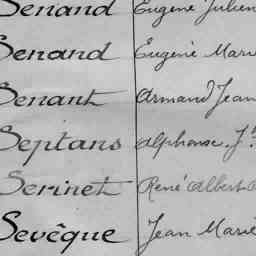 Senand Eugène Julien
Senand Eugène Marie
Senant Armand Jean
Septans Alphonse, Jh
Serinet René Albert
Sevêque Jean Marie